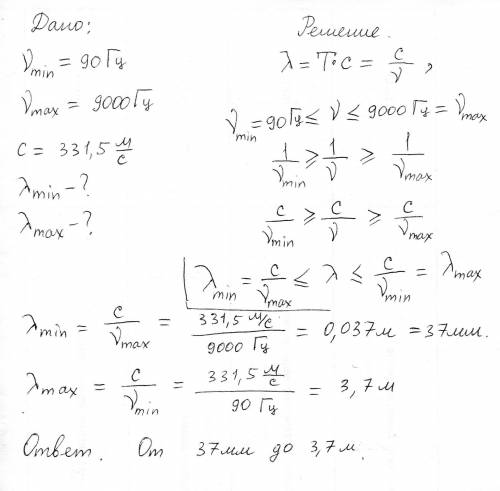 Дано:
ν_min = 90 Гц
ν_max = 9000 Гц
c = 331,5 м/с
λ_min - ?
λ_max - ?
Решение.
λ = T·c = c/ν ,
ν_min = 90 Гц ≤ ν ≤ 9000 Гц = ν_max
1/ν_min ≥ 1/ν ≥ 1/ν_max
c/ν_min ≥ c/ν ≥ c/ν_max
λ_min = c/ν_max ≤ λ ≤ c/ν_min = λ_max
λ_min = c/ν_max = 331,5 м/с / 9000 Гц = 0,037 м = 37 мм.
λ_max = c/ν_min = 331,5 м/с / 90 Гц = 3,7 м
Ответ. От 37 мм до 3,7 м.